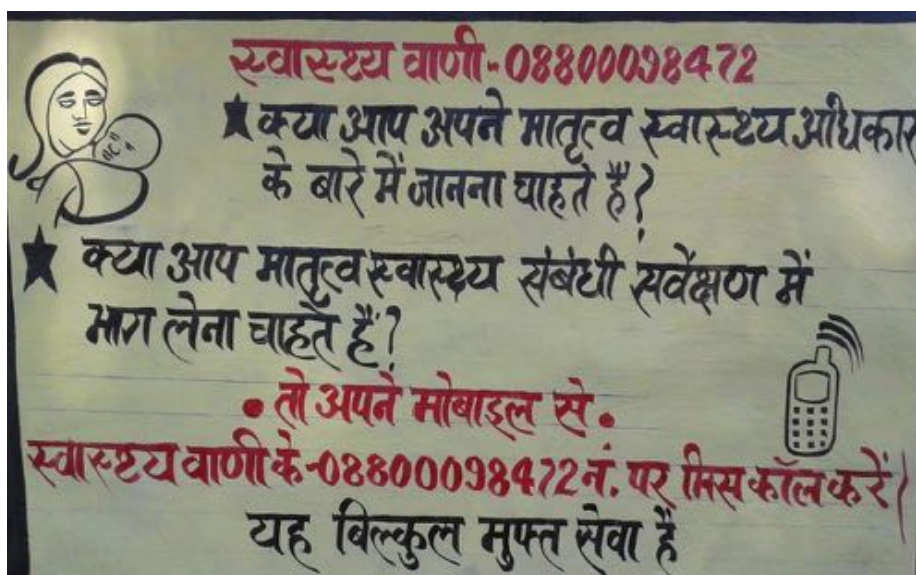 स्वास्थ्य वाणी-08800098472
★ क्या आप अपने मातृत्व स्वास्थ्य अधिकार
के बारे में जानना चाहते हैं?
★ क्या आप मातृत्व स्वास्थ्य संबंधी सर्वेक्षण में
भाग लेना चाहते हैं?
• तो अपने मोबाइल से •
स्वास्थ्य वाणी के-08800098472 नं. पर मिस कॉल करें।
यह बिल्कुल मुफ्त सेवा है